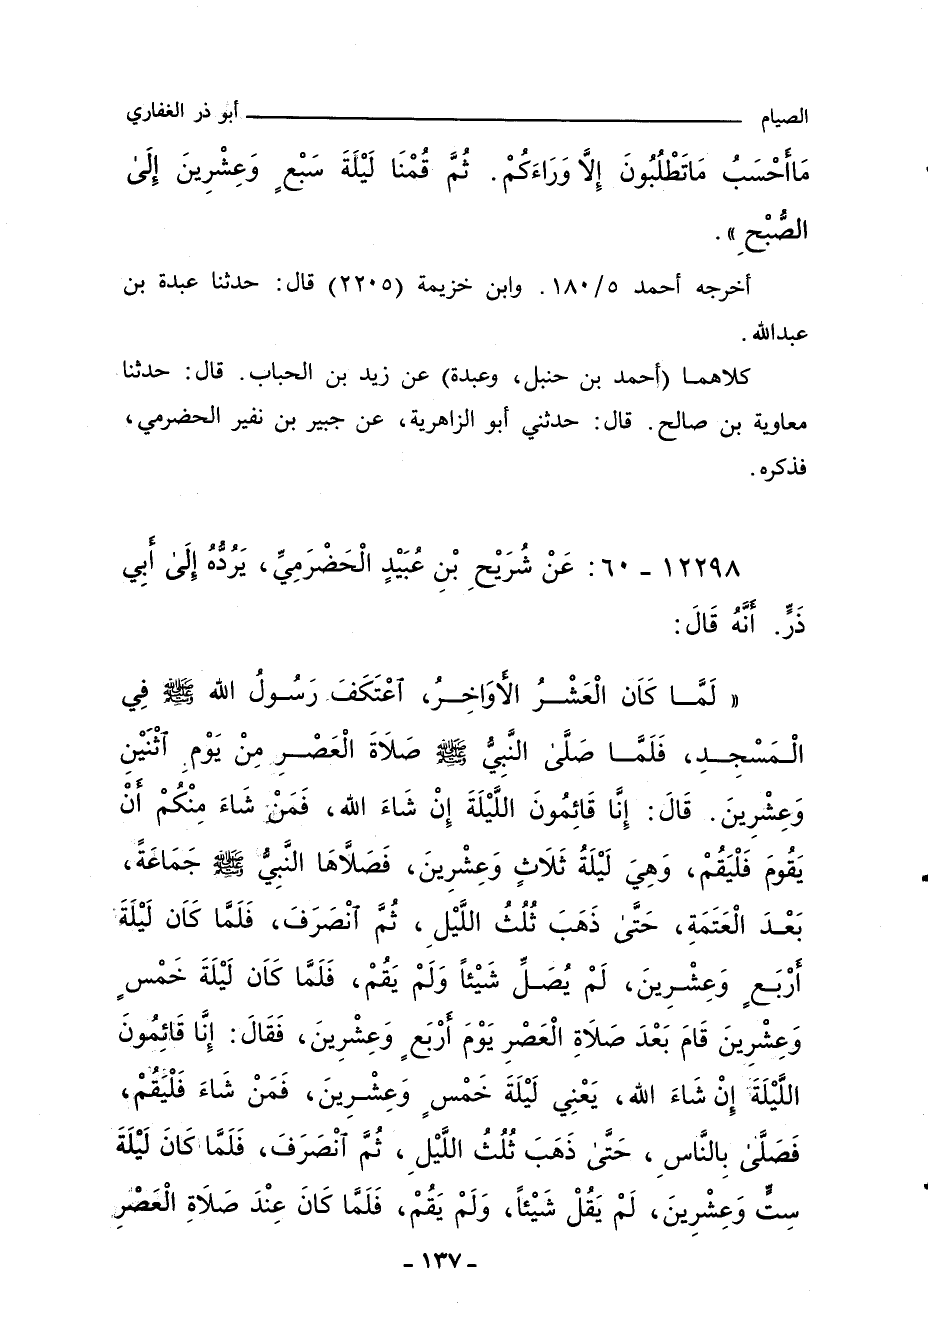 الصيام ــــــــــــــــــــــــــــــــــــــــــــ أبو ذر الغفاري
مَاأَحْسَبُ مَاتَطْلُبُونَ إِلَّا وَرَاءَكُمْ. ثُمَّ قُمْنَا لَيْلَةَ سَبْعٍ وَعِشْرِينَ إِلَىٰ
الصُّبْحِ».
أخرجه أحمد ١٨٠/٥. وابن خزيمة (٢٢٠٥) قال: حدثنا عبدة بن
عبدالله.
كلاهما (أحمد بن حنبل، وعبدة) عن زيد بن الحباب. قال: حدثنا
معاوية بن صالح. قال: حدثني أبو الزاهرية، عن جبير بن نفير الحضرمي،
فذكره.
١٢٢٩٨ - ٦٠: عَنْ شُرَيْحِ بْنِ عُبَيْدٍ الْحَضْرَمِيِّ، يَرُدُّهُ إِلَىٰ أَبِي
ذَرٍّ. أَنَّهُ قَالَ:
« لَمَّا كَانَ الْعَشْرُ الأَوَاخِرُ، اعْتَكَفَ رَسُولُ الله ﷺ فِي
الْمَسْجِدِ، فَلَمَّا صَلَّىٰ النَّبِيُّ ﷺ صَلَاةَ الْعَصْرِ مِنْ يَوْمِ اثْنَيْنِ
وَعِشْرِينَ. قَالَ: إِنَّا قَائِمُونَ اللَّيْلَةَ إِنْ شَاءَ الله، فَمَنْ شَاءَ مِنْكُمْ أَنْ
يَقُومَ فَلْيَقُمْ، وَهِيَ لَيْلَةُ ثَلَاثٍ وَعِشْرِينَ، فَصَلَّاهَا النَّبِيُّ ﷺ جَمَاعَةً،
بَعْدَ الْعَتَمَةِ، حَتَّىٰ ذَهَبَ ثُلُثُ اللَّيْلِ، ثُمَّ انْصَرَفَ، فَلَمَّا كَان لَيْلَةَ
أَرْبَعٍ وَعِشْرِينَ، لَمْ يُصَلِّ شَيْئاً وَلَمْ يَقُمْ، فَلَمَّا كَان لَيْلَةَ خَمْسٍ
وَعِشْرِينَ قَامَ بَعْدَ صَلَاةِ الْعَصْرِ يَوْمَ أَرْبَعٍ وَعِشْرِينَ، فَقَالَ: إِنَّا قَائِمُونَ
اللَّيْلَةَ إِنْ شَاءَ الله، يَعْنِي لَيْلَةَ خَمْسٍ وَعِشْرِينَ، فَمَنْ شَاءَ فَلْيَقُمْ،
فَصَلَّىٰ بِالنَّاسِ، حَتَّىٰ ذَهَبَ ثُلُثُ اللَّيْلِ، ثُمَّ انْصَرَفَ، فَلَمَّا كَانَ لَيْلَةَ
سِتٍّ وَعِشْرِينَ، لَمْ يَقُلْ شَيْئاً، وَلَمْ يَقُمْ، فَلَمَّا كَانَ عِنْدَ صَلَاةِ الْعَصْرِ
- ١٣٧ -